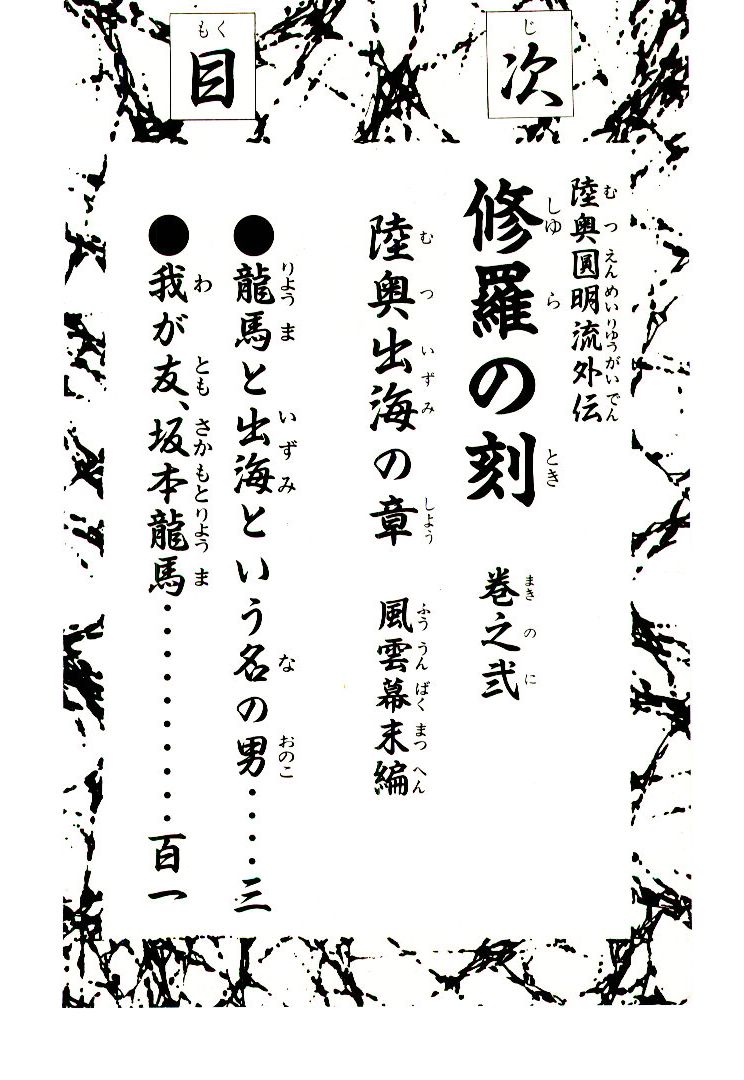 目次
陸奥圓明流外伝
修羅の刻
巻之弐
陸奥出海の章 風雲幕末編
●龍馬と出海という名の男・・・・三
●我が友、坂本龍馬・・・・・・・・・・百一